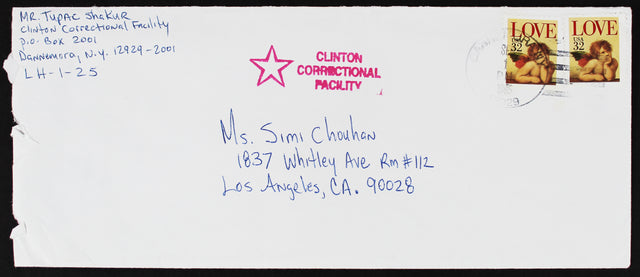 MR. TUPAC SHAKUR
Clinton Correctional Facility
P.O. Box 2001
Dannemora, N.Y. 12929-2001
LH-1-25
CLINTON
CORRECTIONAL
FACILITY
LOVE
USA
32
LOVE
USA
32
Ms. Simi Chouhan
1837 Whitley Ave Rm #112
Los Angeles, CA. 90028